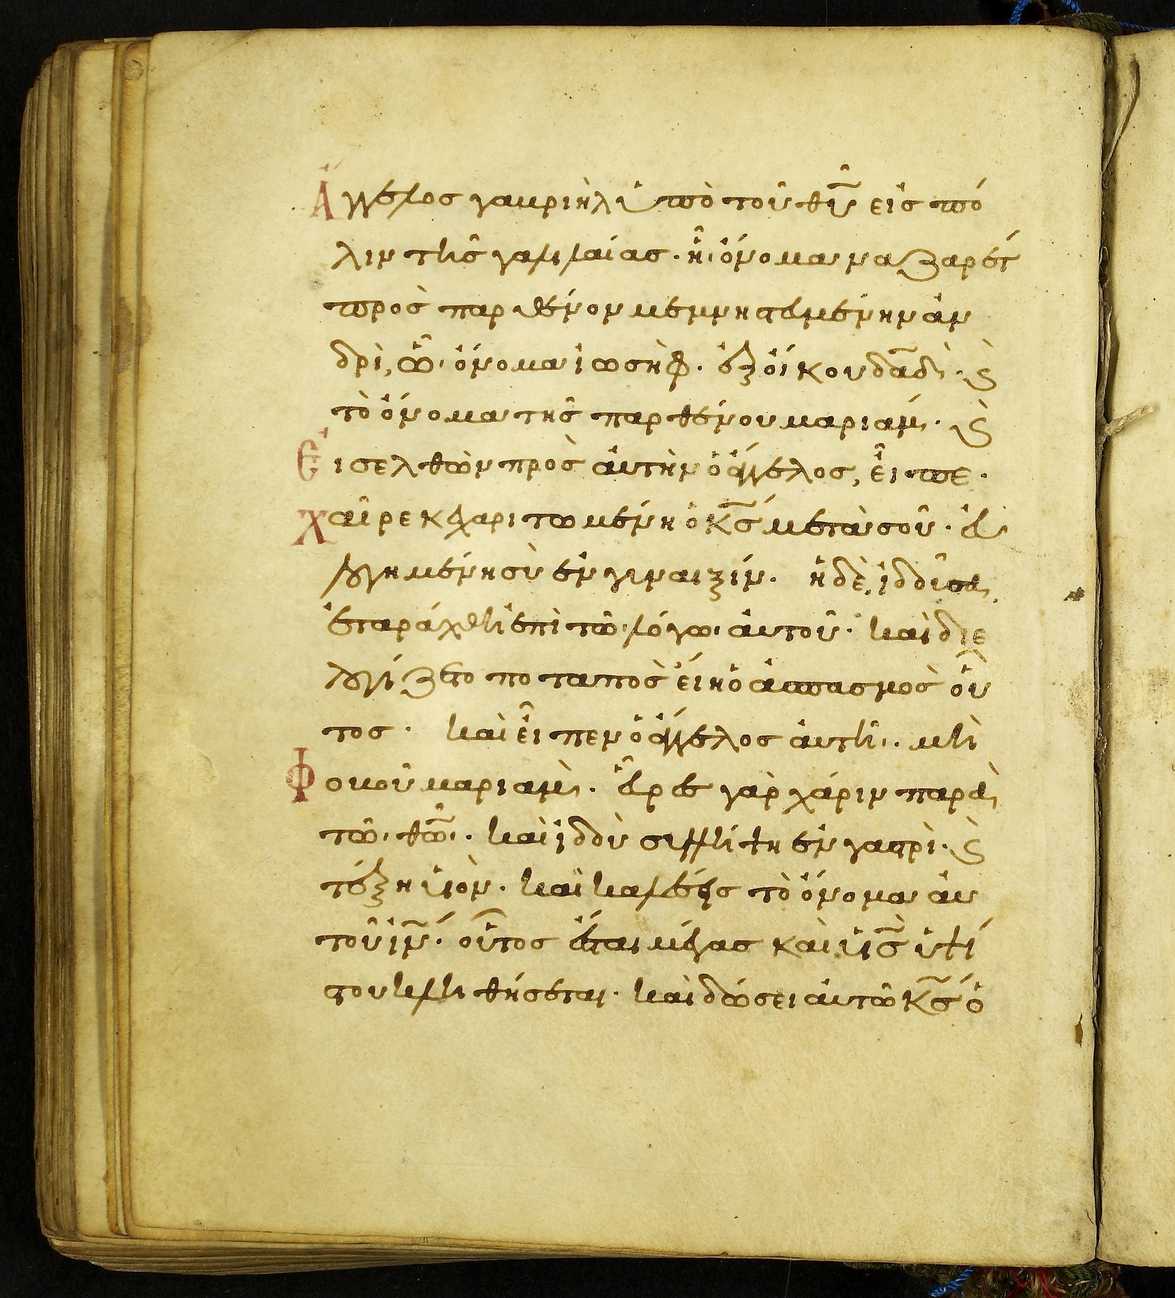 Ἄγγελος γαβριὴλ ὑπὸ τοῦ θῦ εἰς πό
λιν τῆς γαλιλαίας· ἧ ὄνομα ναζαρέτ
πρὸς παρθένον μεμνηστευμένην ἀν
δρὶ, ὧ ὄνομα ἰωσὴφ· ἐξ οἴκου δαδ· ϛ
τὸ ὄνομα τῆς παρθένου μαριάμ· ϛ
Εἰσελθὼν πρὸς αὐτὴν ὁ ἄγγελος, εἶπε·
Χαῖρε κεχαριτωμένη ὁ κς μετὰ σοῦ· εὐ
λογημένη σὺ ἐν γυναιξίν· ἡ δὲ ἰδοῦσα
ἐταράχθη ἐπὶ τῶ λόγω αὐτοῦ· καὶ διε
λογίζετο ποταπὸς εἴη ὁ ἀσπασμὸς οὗ
τος· καὶ εἶπεν ὁ ἄγγελος αὐτῆ· μὴ
Φοβοῦ μαριάμ· εὗρες γὰρ χάριν παρὰ
τῶ θῶ· καὶ ἰδοὺ συλλήψη ἐν γαστρὶ· ϛ
τέξη υἱὸν· καὶ καλέσεις τὸ ὄνομα αὐ
τοῦ ιν· οὗτος ἔσται μέγας καὶ υἱς ὑψί
στου κληθήσεται· καὶ δώσει αὐτῶ κς ὁ